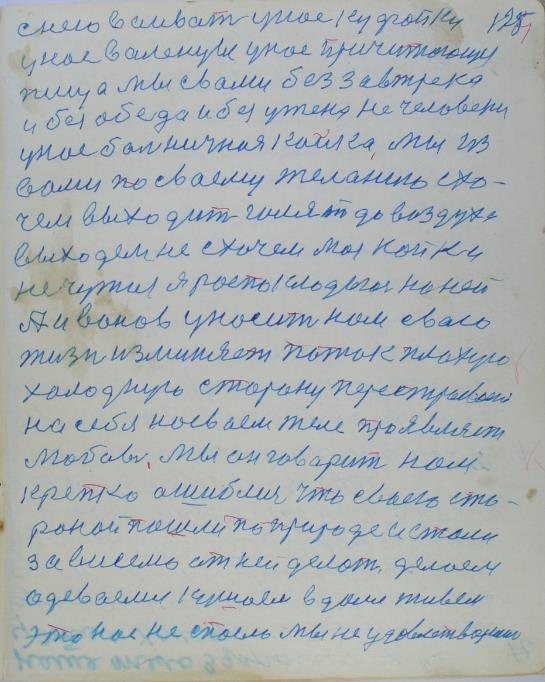 снего валиват унае кудрайку 125
унае валенуи унае причитающу
пищу а мы свами без завтрека
и без обеда и без ужена не человени
унае болничная койка, мы из
вами по сваему желанию схо-
чем выходит гулят до воздуха
выходем не схочем моя койка
не чужия я роспокладоюс на ней
А иванов уносит ном сваю
жизн измиияет поток плахую
халодную сторону
на себя насваем теле проявляет
любовь. Мы он говарит ном-
крепко ошиблис что сваею сто-
роной пошли по природе и стали
зависемо от ней делот, делаем
одеваеми кушаем в доме живем
это нас не спасло мы не удовлетворяли